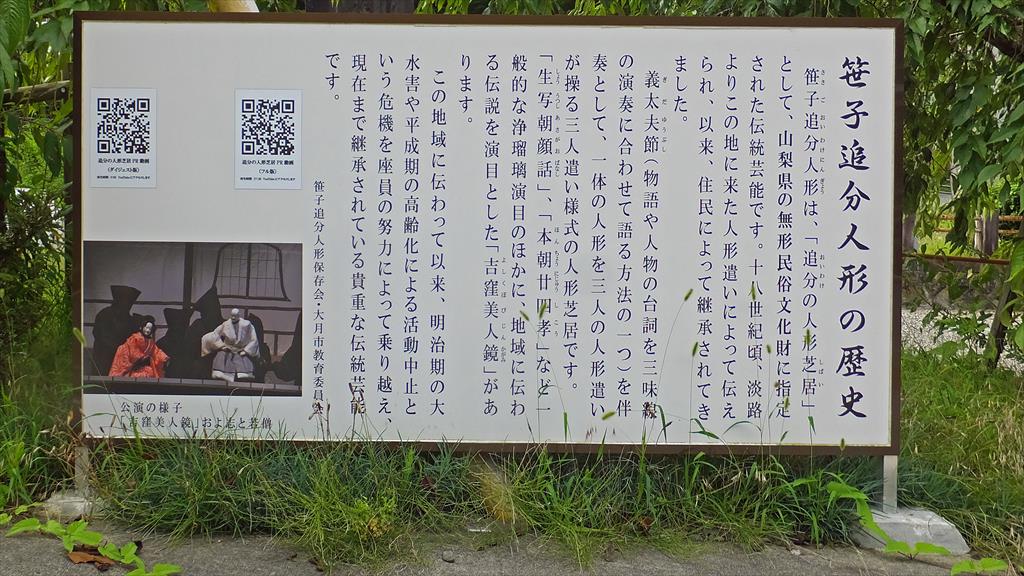 笹子追分人形の歴史
笹子追分人形は、「追分の人形芝居」
として、山梨県の無形民俗文化財に指定
された伝統芸能です。十八世紀頃、淡路
よりこの地に来た人形遣いによって伝え
られ、以来、住民によって継承されてき
ました。
義太夫節(物語や人物の台詞を三味線
の演奏に合わせて語る方法の一つ)を伴
奏として、一体の人形を三人の人形遣い
が操る三人遣い様式の人形芝居です。
「生写朝顔話」、「本朝廿四孝」など一
般的な浄瑠璃演目のほかに、地域に伝わ
る伝説を演目とした「吉窪美人鏡」があ
ります。
この地域に伝わって以来、明治期の大
水害や平成期の高齢化による活動中止と
いう危機を座員の努力によって乗り越え、
現在まで継承されている貴重な伝統芸能
です。
笹子追分人形保存会・大月市教育委員会
追分の人形芝居 PR 動画
(フル版)
追分の人形芝居 PR 動画
(ダイジェスト版)
公演の様子
「吉窪美人鏡」およ志と芸僧